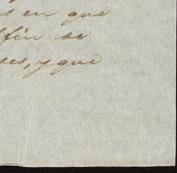 s en que
fin se
ses, y que